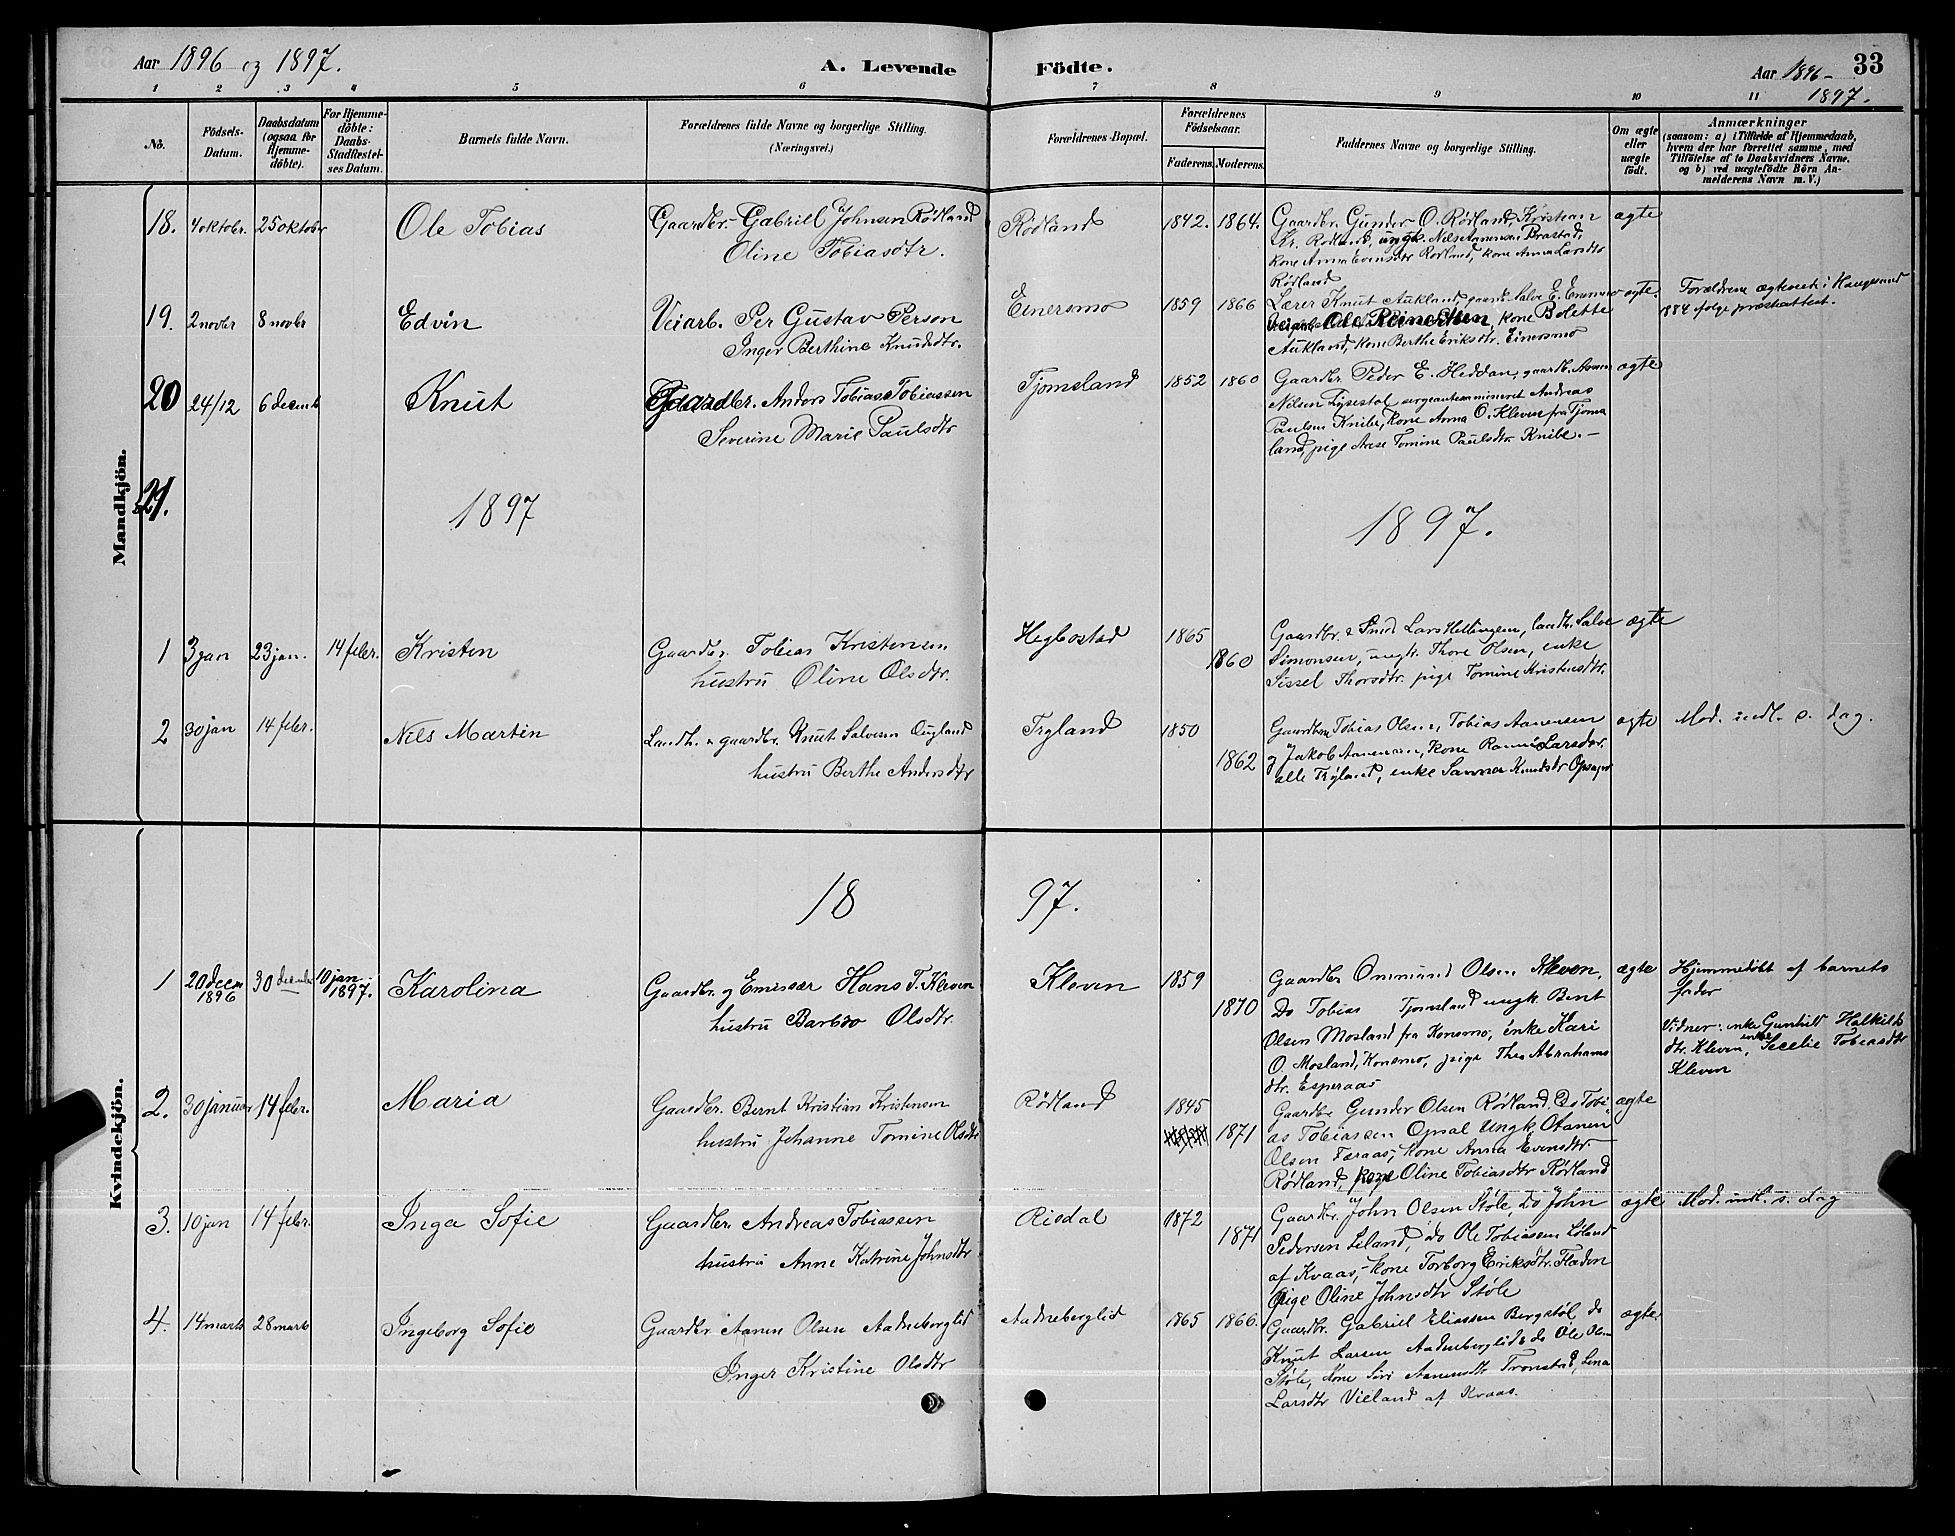 Aar 1896 og 1897.
A. Levende Födte.
Aar 1896-
1897.
33
1 2 3 4 5 6 7 8 9 10 11
No.
Födsels-
Datum.
Daabsdatum
(ogsaa for
Hjemme-
döbte).
For Hjemme-
döbte:
Daabs-
Stadfæstel-
ses Datum.
Barnets fulde Navn.
Forældrenes fulde Navne og borgerlige Stilling.
(Næringsvei.)
Forældrenes-Bopæl.
Forældrenes
Födselsaar.
Faderens. Moderens.
Faddernes Navne og borgerlige Stilling.
Om ægte
eller
uægte
født.
Anmærkninger
(saasom: a) i Tilfælde af Hjemmedaab,
hvem der har forrettet samme, med
Tilföielse af to Daabsvidners Navne.
og b) ved uægtefödte Börn An-
melderens Navn m. V.)
Mandkjön.
18. 4 oktobr. 25 oktobr Ole Tobias
Gaardbr. Gabriell Johnsen Rødland
Oline Tobiasdtr.
Rødland 1842. 1864.
Gaardbr. Gunder O. Rødland, Kristian
Kr. Rødland, ungk. Nils Aanensen Brastad,
kone Anna Evensdtr Rødland, kone Anna Larsdtr
Rødland
ægte
19. 2 novbr 8 novbr Edvin
Veiarb. Per Gustav Person
Inger Berthine Knudsdtr.
Einersmo 1859 1866
Lærer Knut Aukland, gaardb. Salve E. Einersmo
Veiarb. Ole Reinertsen, kone Bolette
Aukland, kone Berthe Eriksdtr. Einersmo
ægte.
Forældrene ægteviet i Haugesund
1884 ifølge præsteattest.
20 24/12 6 decemb Knut
Gaardbr. Anders Tobias Tobiassen
Severine Marie Paulsdtr
Tjomsland 1852 1860
Gaardbr Peder E. Heddan, gaardb. Aanen
Nilsen Lysestøl sergeant Andreas
Paulsen Knibe, kone Anna O. Kleven fra Tjoms
land, pige Aase Tomine Paulsdtr Knibe.-
ægte
21.
1897
1897.
1 3 jan 23 jan. 14 febr. Kristen
Gaardbr. Tobias Kristensen
hustru Oline Olsdtr.
Hegbostad 1865
1860
Gaardbr. & Smed Lars Hellingsen, landh. Salve
Simonsen, ungk. Thore Olsen, enke
Sissel Thorsdtr. pige Tomine Kristensdtr.
ægte
2 30 jan 14 febr. Nils Martin
Landh. & gaardbr. Knut Salvesen Ougland
hustru Berthe Andersdtr
Tryland 1850
1862
Gaardbrn Tobias Olsen, Tobias Aanensen
og Jakob Aanensen, kone Larsdtr.
alle Trÿland, enke Sanna Knudsdtr Opsal
ægte
Mod. indl. s. dag.
Kvindekjön.
18 97.
1 20 decm 30 decembr 10 jan Karolina
1896 1897.
Gaardbr. og Emissær Hans T. Kleven
hustru Barbro Olsdtr.
Kleven 1859
1870
Gaardbr Ommund Olsen Kleven,
Do Tobias Tjomsland ungk. Bent
Olsen Mosland fra Konsmo, enke Kari
O. Mosland, Konsmo, pige Thea Abrahams
dtr. Esperaas
ægte
Hjemmedøbt af barnets
fader
Vidner: enke Gunhild Halkilds
dtr. Kleven, enke Secelie Tobiasdtr
Kleven
2. 30 januar 14 febr. Maria
Gaardbr. Bernt Kristian Kristensen
hustru Johanne Tomine Olsdtr
Rødland 1845
1871
Gaardbr Gunder Olsen Rødland. Do Tobi-
as Tobiassen Opsal Ungk. Aanen
Olsen Færaas, kone Anna Evensdtr.
Rødland, kone Oline Tobiasdtr Rødland
ægte
3. 10 jan 14 febr. Inga Sofie
Gaardbr. Andreas Tobiassen
hustru Anne Katrine Johnsdtr
Risdal 1872
1871
Gaardbr. John Olsen Støle, Do John
Pedersen Leland, do Ole Tobiassen Leland
af Kvaas, kone Torborg Eriksdtr. Fladen
Pige Oline Johnsdtr Støle
ægte
Mod. indl. s. dag
4. 14 marts 28 marts Ingeborg Sofie
Gaardbr. Aanen Olsen Aadneberglid
Inger Kristine Olsdtr
Aadneberglid 1865 1866.
Gaardbr. Gabriel Eliassen Bergstøl, do
Knut Larsen Aadneberglid & do Ole Ols-
Støle, kone Siri Aanensdtr Tronstad, Lena
Larsdtr Vieland af Kvaas.
ægte